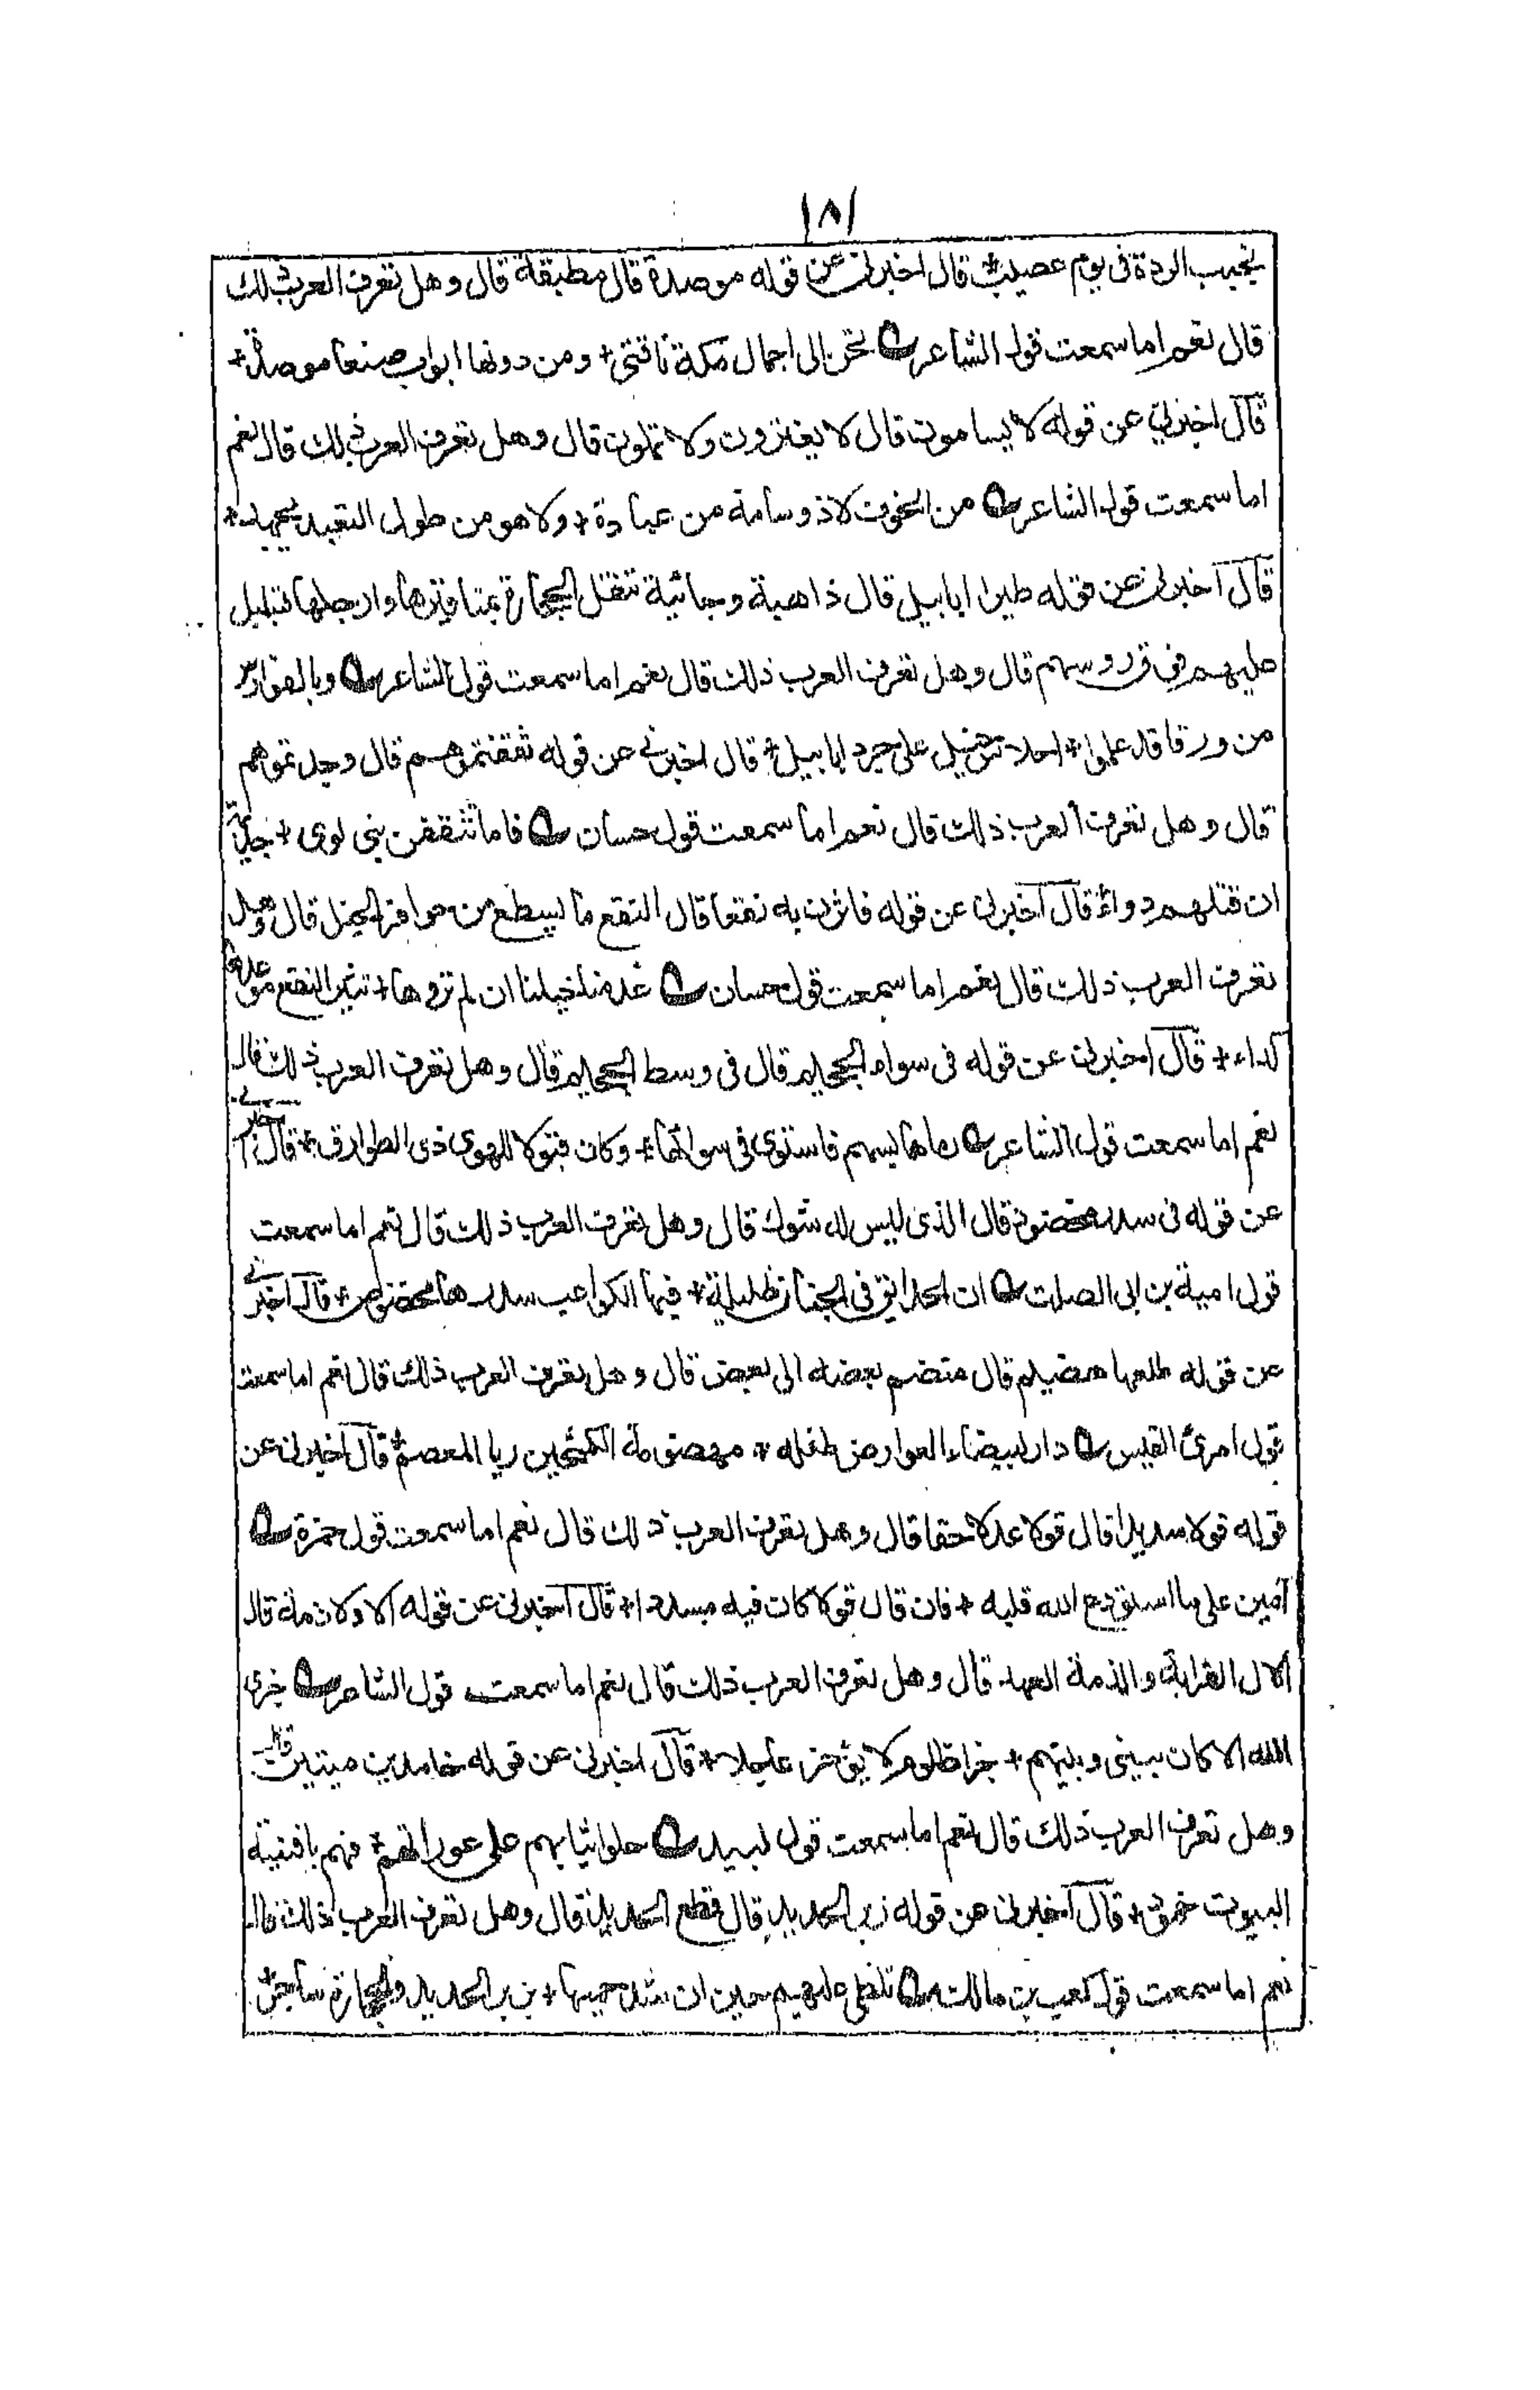 ١٨١
بجنب الردة فى يوم عصيب + قال اخبرنى عن قوله موصدة قال مطبقة قال وهل تعرف العرب ذلك
قال نعم اما سمعت قول الشاعر تحن الى اجمال مكة ناقتى + ومن دونها ابواب صنعا موصدة +
قال اخبرنى عن قوله لا يسامون قال لا يفترون ولا يملون قال وهل تعرف العرب ذلك قال نعم
اما سمعت قول الشاعر من الخوف لا ذو سامة من عبادة + ولا هو من طول التعبد يجهد +
قال اخبرنى عن قوله طيرا ابابيل قال ذاهبة وجائية تنقل الحجارة بمناقيرها وارجلها فتبلبل
عليهم فى قرروسهم قال وهل تعرف العرب ذلك قال نعم اما سمعت قول الشاعر وبالفوارس
من ورقا قد علموا + احلاس خيل على جرد ابابيل + قال اخبرنى عن قوله ثقفتموهم قال وجدتموهم
قال وهل تعرف العرب ذلك قال نعم اما سمعت قول حسان فاما تثقفن بنى لوى + جذيمة
ان قتلهم دواء + قال اخبرنى عن قوله فاثرن به نقعا قال النقع ما يسطع من حوافر الخيل قال وهل
تعرف العرب ذلك قال نعم اما سمعت قول حسان عدمنا خيلنا ان لم تروها + تثير النقع موعدها
كداء + قال اخبرنى عن قوله فى سواء الجحيم قال فى وسط الجحيم قال وهل تعرف العرب ذلك قال
نعم اما سمعت قول الشاعر رماها بسهم فاستوى فى سوائها + وكان قبولا للهوى ذى الطوارق + قال اخبرنى
عن قوله فى سدر مخضود قال الذى ليس له شوك قال وهل تعرف العرب ذلك قال نعم اما سمعت
قول امية بن ابى الصلت ان الحدايق فى الجنان ظليلة + فيها الكواعب سدرها مخضود + قال اخبرنى
عن قوله طلعها هضيم قال منضم بعضه الى بعض قال وهل تعرف العرب ذلك قال نعم اما سمعت
قول امرئ القيس دار لبيضاء العوارض طفلة + مهضومة الكشحين ريا المعصم + قال اخبرنى عن
قوله قولا سديدا قال قولا عدلا حقا قال وهل تعرف العرب ذلك قال نعم اما سمعت قول حمزة
امين على ما استودع الله قلبه + فان قال قولا كان فيه مسددا + قال اخبرنى عن قوله الا ولا ذمة قال
الال القرابة والذمة العهد قال وهل تعرف العرب ذلك قال نعم اما سمعت قول الشاعر جزى
الله الا كان بينى وبينهم + جزا ظلوم لا يؤخر عاجلا + قال اخبرنى عن قوله خامدين ميتين قال
وهل تعرف العرب ذلك قال نعم اما سمعت قول لبيد حلوا ثيابهم على عوراتهم + فهم بافنية
البيوت خمود + قال اخبرنى عن قوله زبر الحديد قال قطع الحديد قال وهل تعرف العرب ذلك قال
نعم اما سمعت قول كعب بن مالك تلظى عليهم حين ان شد حميها + بزبر الحديد والحجارة ساجر +